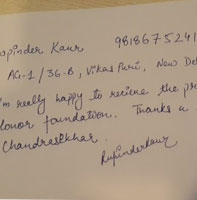 opinder Kaur 9818675241
AG-1/36-B, Vikas Puri, New Del
I'm really happy to recieve the pr
donor foundation. Thanks a
Chandrasekhar.
Rupinderkaur